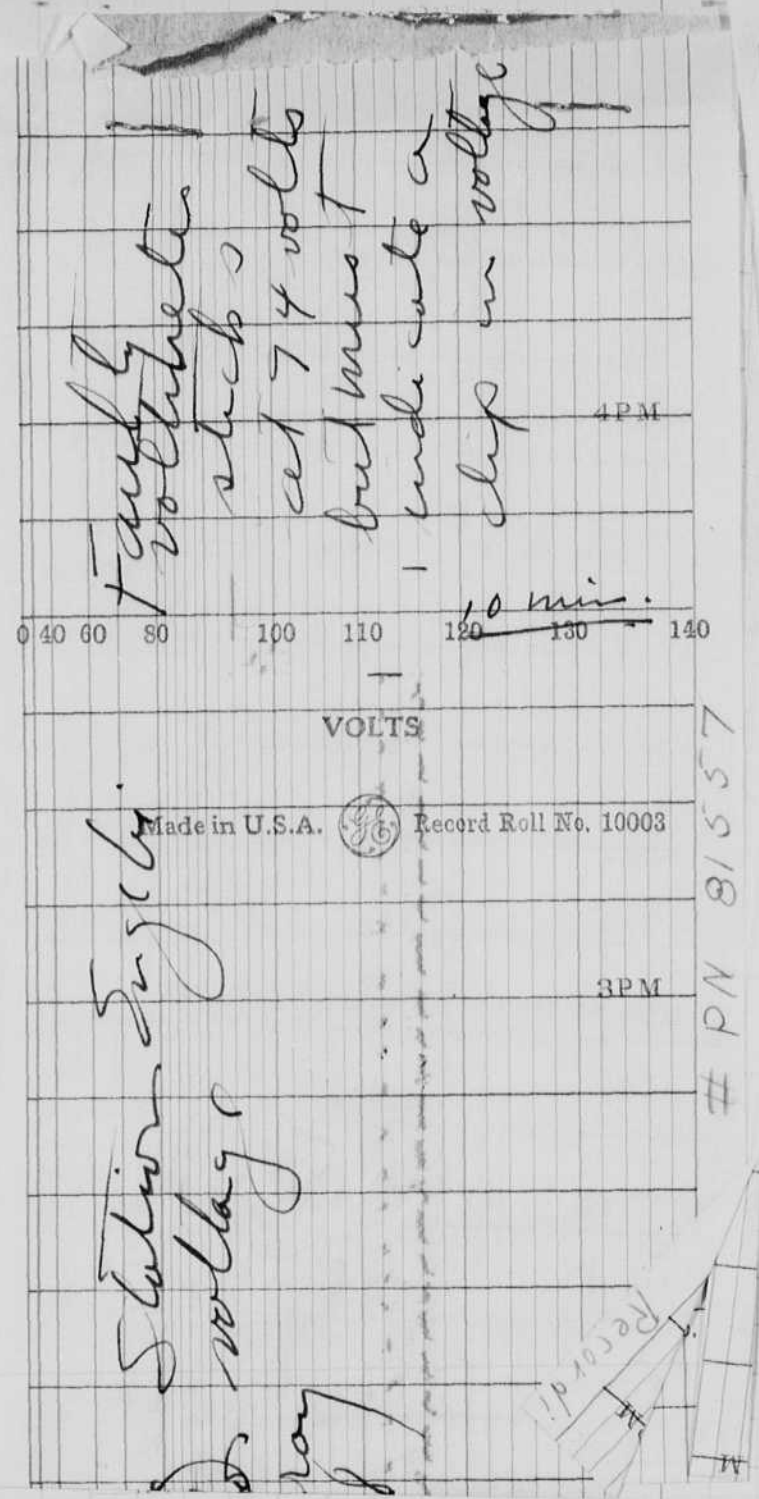 Faulty
voltmeter
sticks
at 74 volts
but must
indicate a
dip in voltage
4PM
10 min.
0 40 60 80 100 110 120 130 140
VOLTS
Made in U.S.A. GE Record Roll No. 10003
3PM
# PN 81557
Station
voltage
Recordi
M
M